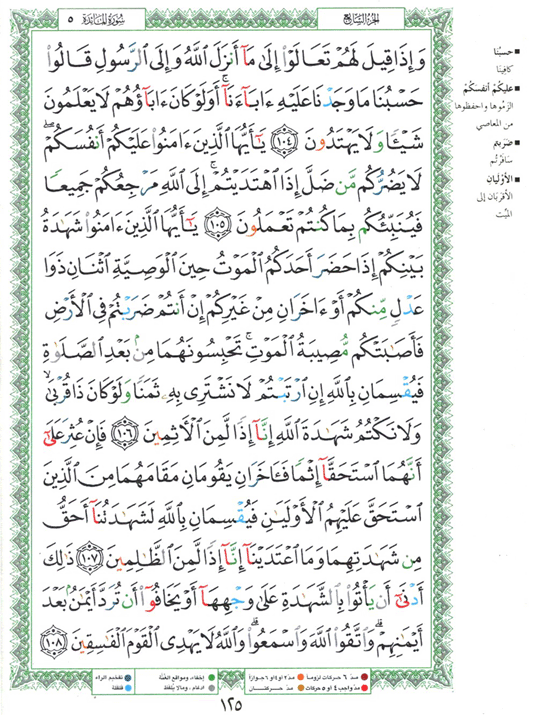 الجزء السابع
سورة المائدة ٥
وَإِذَا قِيلَ لَهُمْ تَعَالَوْا۟ إِلَىٰ مَآ أَنزَلَ ٱللَّهُ وَإِلَى ٱلرَّسُولِ قَالُوا۟
حَسْبُنَا مَا وَجَدْنَا عَلَيْهِ ءَابَآءَنَآ ۚ أَوَلَوْ كَانَ ءَابَآؤُهُمْ لَا يَعْلَمُونَ
شَيْـًٔا وَلَا يَهْتَدُونَ ١٠٤ يَـٰٓأَيُّهَا ٱلَّذِينَ ءَامَنُوا۟ عَلَيْكُمْ أَنفُسَكُمْ ۖ
لَا يَضُرُّكُم مَّن ضَلَّ إِذَا ٱهْتَدَيْتُمْ ۚ إِلَى ٱللَّهِ مَرْجِعُكُمْ جَمِيعًا
فَيُنَبِّئُكُم بِمَا كُنتُمْ تَعْمَلُونَ ١٠٥ يَـٰٓأَيُّهَا ٱلَّذِينَ ءَامَنُوا۟ شَهَـٰدَةُ
بَيْنِكُمْ إِذَا حَضَرَ أَحَدَكُمُ ٱلْمَوْتُ حِينَ ٱلْوَصِيَّةِ ٱثْنَانِ ذَوَا
عَدْلٍ مِّنكُمْ أَوْ ءَاخَرَانِ مِنْ غَيْرِكُمْ إِنْ أَنتُمْ ضَرَبْتُمْ فِى ٱلْأَرْضِ
فَأَصَـٰبَتْكُم مُّصِيبَةُ ٱلْمَوْتِ ۚ تَحْبِسُونَهُمَا مِنۢ بَعْدِ ٱلصَّلَوٰةِ
فَيُقْسِمَانِ بِٱللَّهِ إِنِ ٱرْتَبْتُمْ لَا نَشْتَرِى بِهِۦ ثَمَنًا وَلَوْ كَانَ ذَا قُرْبَىٰ ۙ
وَلَا نَكْتُمُ شَهَـٰدَةَ ٱللَّهِ إِنَّآ إِذًا لَّمِنَ ٱلْـَٔاثِمِينَ ١٠٦ فَإِنْ عُثِرَ عَلَىٰٓ
أَنَّهُمَا ٱسْتَحَقَّآ إِثْمًا فَـَٔاخَرَانِ يَقُومَانِ مَقَامَهُمَا مِنَ ٱلَّذِينَ
ٱسْتَحَقَّ عَلَيْهِمُ ٱلْأَوْلَيَـٰنِ فَيُقْسِمَانِ بِٱللَّهِ لَشَهَـٰدَتُنَآ أَحَقُّ
مِن شَهَـٰدَتِهِمَا وَمَا ٱعْتَدَيْنَآ إِنَّآ إِذًا لَّمِنَ ٱلظَّـٰلِمِينَ ١٠٧ ذَٰلِكَ
أَدْنَىٰٓ أَن يَأْتُوا۟ بِٱلشَّهَـٰدَةِ عَلَىٰ وَجْهِهَآ أَوْ يَخَافُوٓا۟ أَن تُرَدَّ أَيْمَـٰنٌۢ بَعْدَ
أَيْمَـٰنِهِمْ ۗ وَٱتَّقُوا۟ ٱللَّهَ وَٱسْمَعُوا۟ ۗ وَٱللَّهُ لَا يَهْدِى ٱلْقَوْمَ ٱلْفَـٰسِقِينَ ١٠٨
■ حسبُنا
كافينا
■ عليكُمْ أنفسَكُمْ
الزمُوها واحفظوها
من المعاصي
■ ضَرَبتم
سافرتُم
■ الأوْليان
الأقربَان إلى
الميِّت
مدّ ٦ حركات لزوماً
مدّ ٢ أو ٤ أو ٦ جوازاً
إخفاء، ومواقع الغُنَّة
تفخيم الراء
مدّ واجب ٤ أو ٥ حركات
مدّ حركتان
ادغام، وما لا يُلفَظ
قلقلة
١٢٥